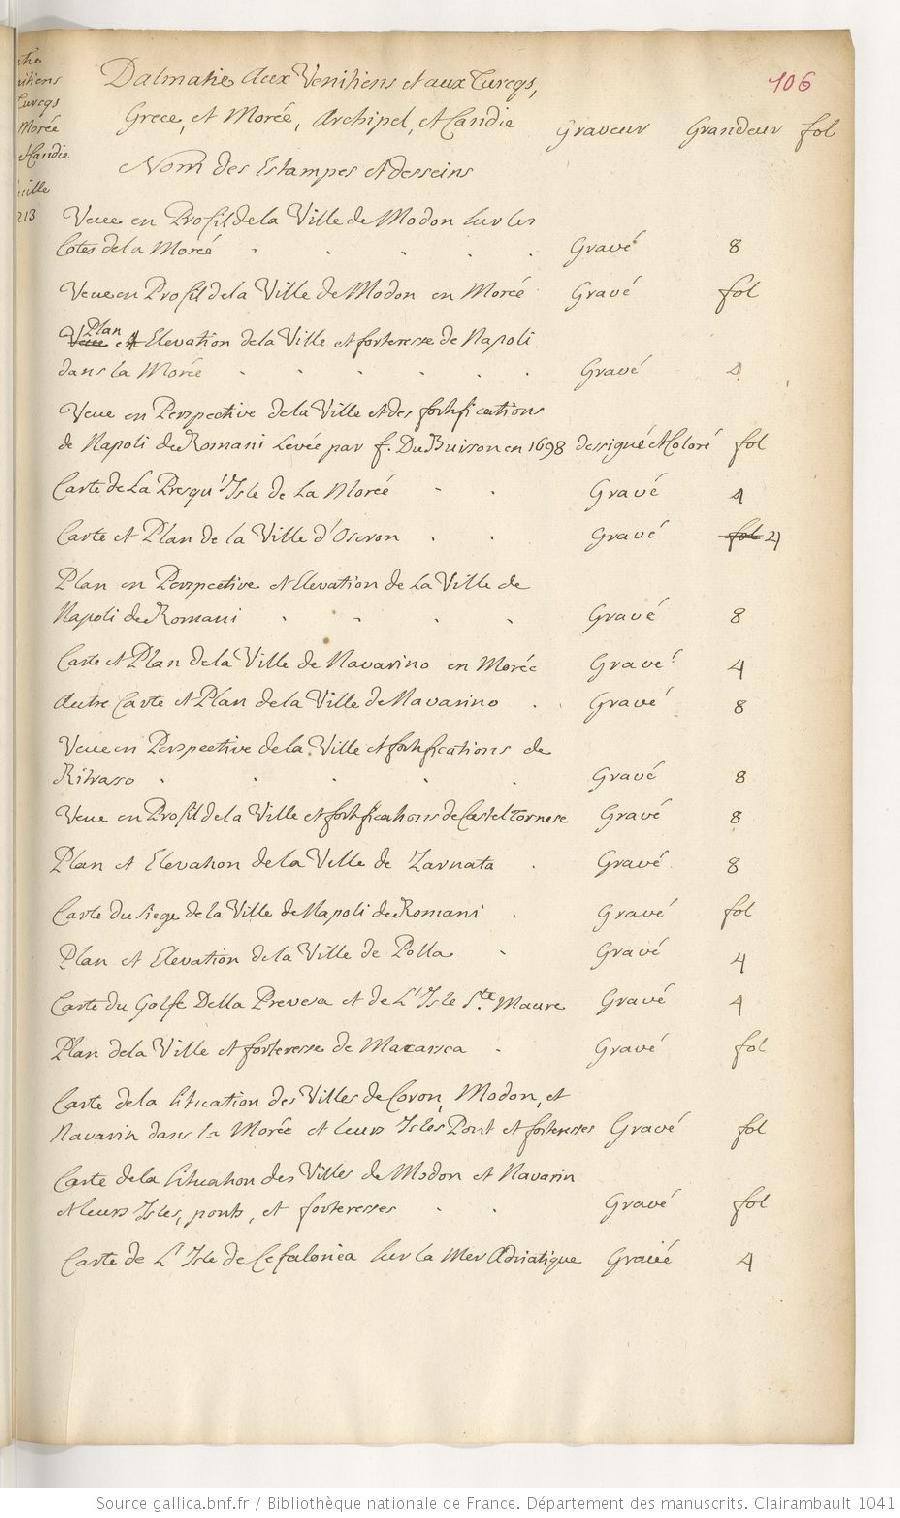 106
Dalmatie aux Venitiens et aux Turcqs,
Grece, et Morée, Archipel, et Candie
Graveur Grandeur fol
Nom des Estampes et desseins
Veue en Profil de la Ville de Modon sur les
Costes de la Morée . . . . . Gravé 8
Veue en Profil de la Ville de Modon en Morée Gravé fol
Veue Plan et Elevation de la Ville et forteresse de Napoli
dans la Morée . . . . . . Gravé 4
Veue en Perspective de la Ville et des fortifications
de Napoli de Romani Levée par f. Du Buisson en 1698 dessigné et Coloré fol
Carte de La Presqu'Isle de La Morée - . Gravé 4
Carte et Plan de la Ville d'Oseron . . Gravé fol 4
Plan en Perspective et Elevation de La Ville de
Napoli de Romani . . . . Gravé 8
Carte et Plan de la Ville de Navarino en Morée Gravé 4
Autre Carte et Plan de la Ville de Navarino . Gravé 8
Veue en Perspective de la Ville et fortifications de
Ritraso . . . . . Gravé 8
Veue en Profil de la Ville et fortifications de Casteltornese Gravé 8
Plan et Elevation de la Ville de Zarnata . Gravé 8
Carte du siege de la Ville de Napoli de Romani . Gravé fol
Plan et Elevation de la Ville de Polla . Gravé 4
Carte du Golfe Della Prevesa et de L'Isle Ste. Maure Gravé 4
Plan de la Ville et forteresse de Macarsca . Gravé fol
Carte de la situation des Villes de Coron, Modon, et
Navarin dans la Morée et leurs Isles Pont et forteresses Gravé fol
Carte de la situation des Villes de Modon et Navarin
et leurs Isles, ponts, et forteresses . . Gravé fol
Carte de L'Isle de Cefalonia sur la Mer Adriatique Gravé 4
Source gallica.bnf.fr / Bibliothèque nationale de France. Département des manuscrits. Clairambault 1041